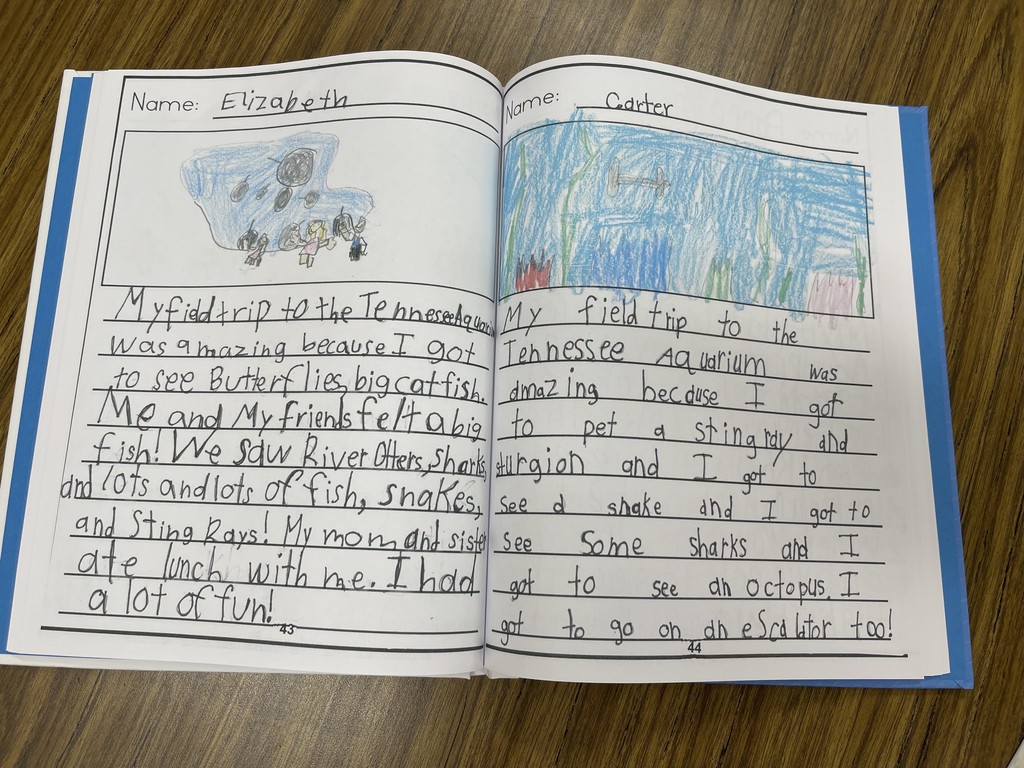 Name: Elizabeth
My field trip to the Tenneseeaquarium
was amazing because I got
to see Butterflies, big catfish.
Me and My friends felt a big
fish! We saw River Otters, sharks,
and lots and lots of fish, snakes,
and Sting Rays! My mom and sister
ate lunch with me. I had
a lot of fun!
43
Name: Carter
My field trip to the
Tennessee Aquarium was
amazing because I got
to pet a stingray and
sturgion and I got to
see a snake and I got to
see some sharks and I
got to see an octopus. I
got to go on an escalator too!
44